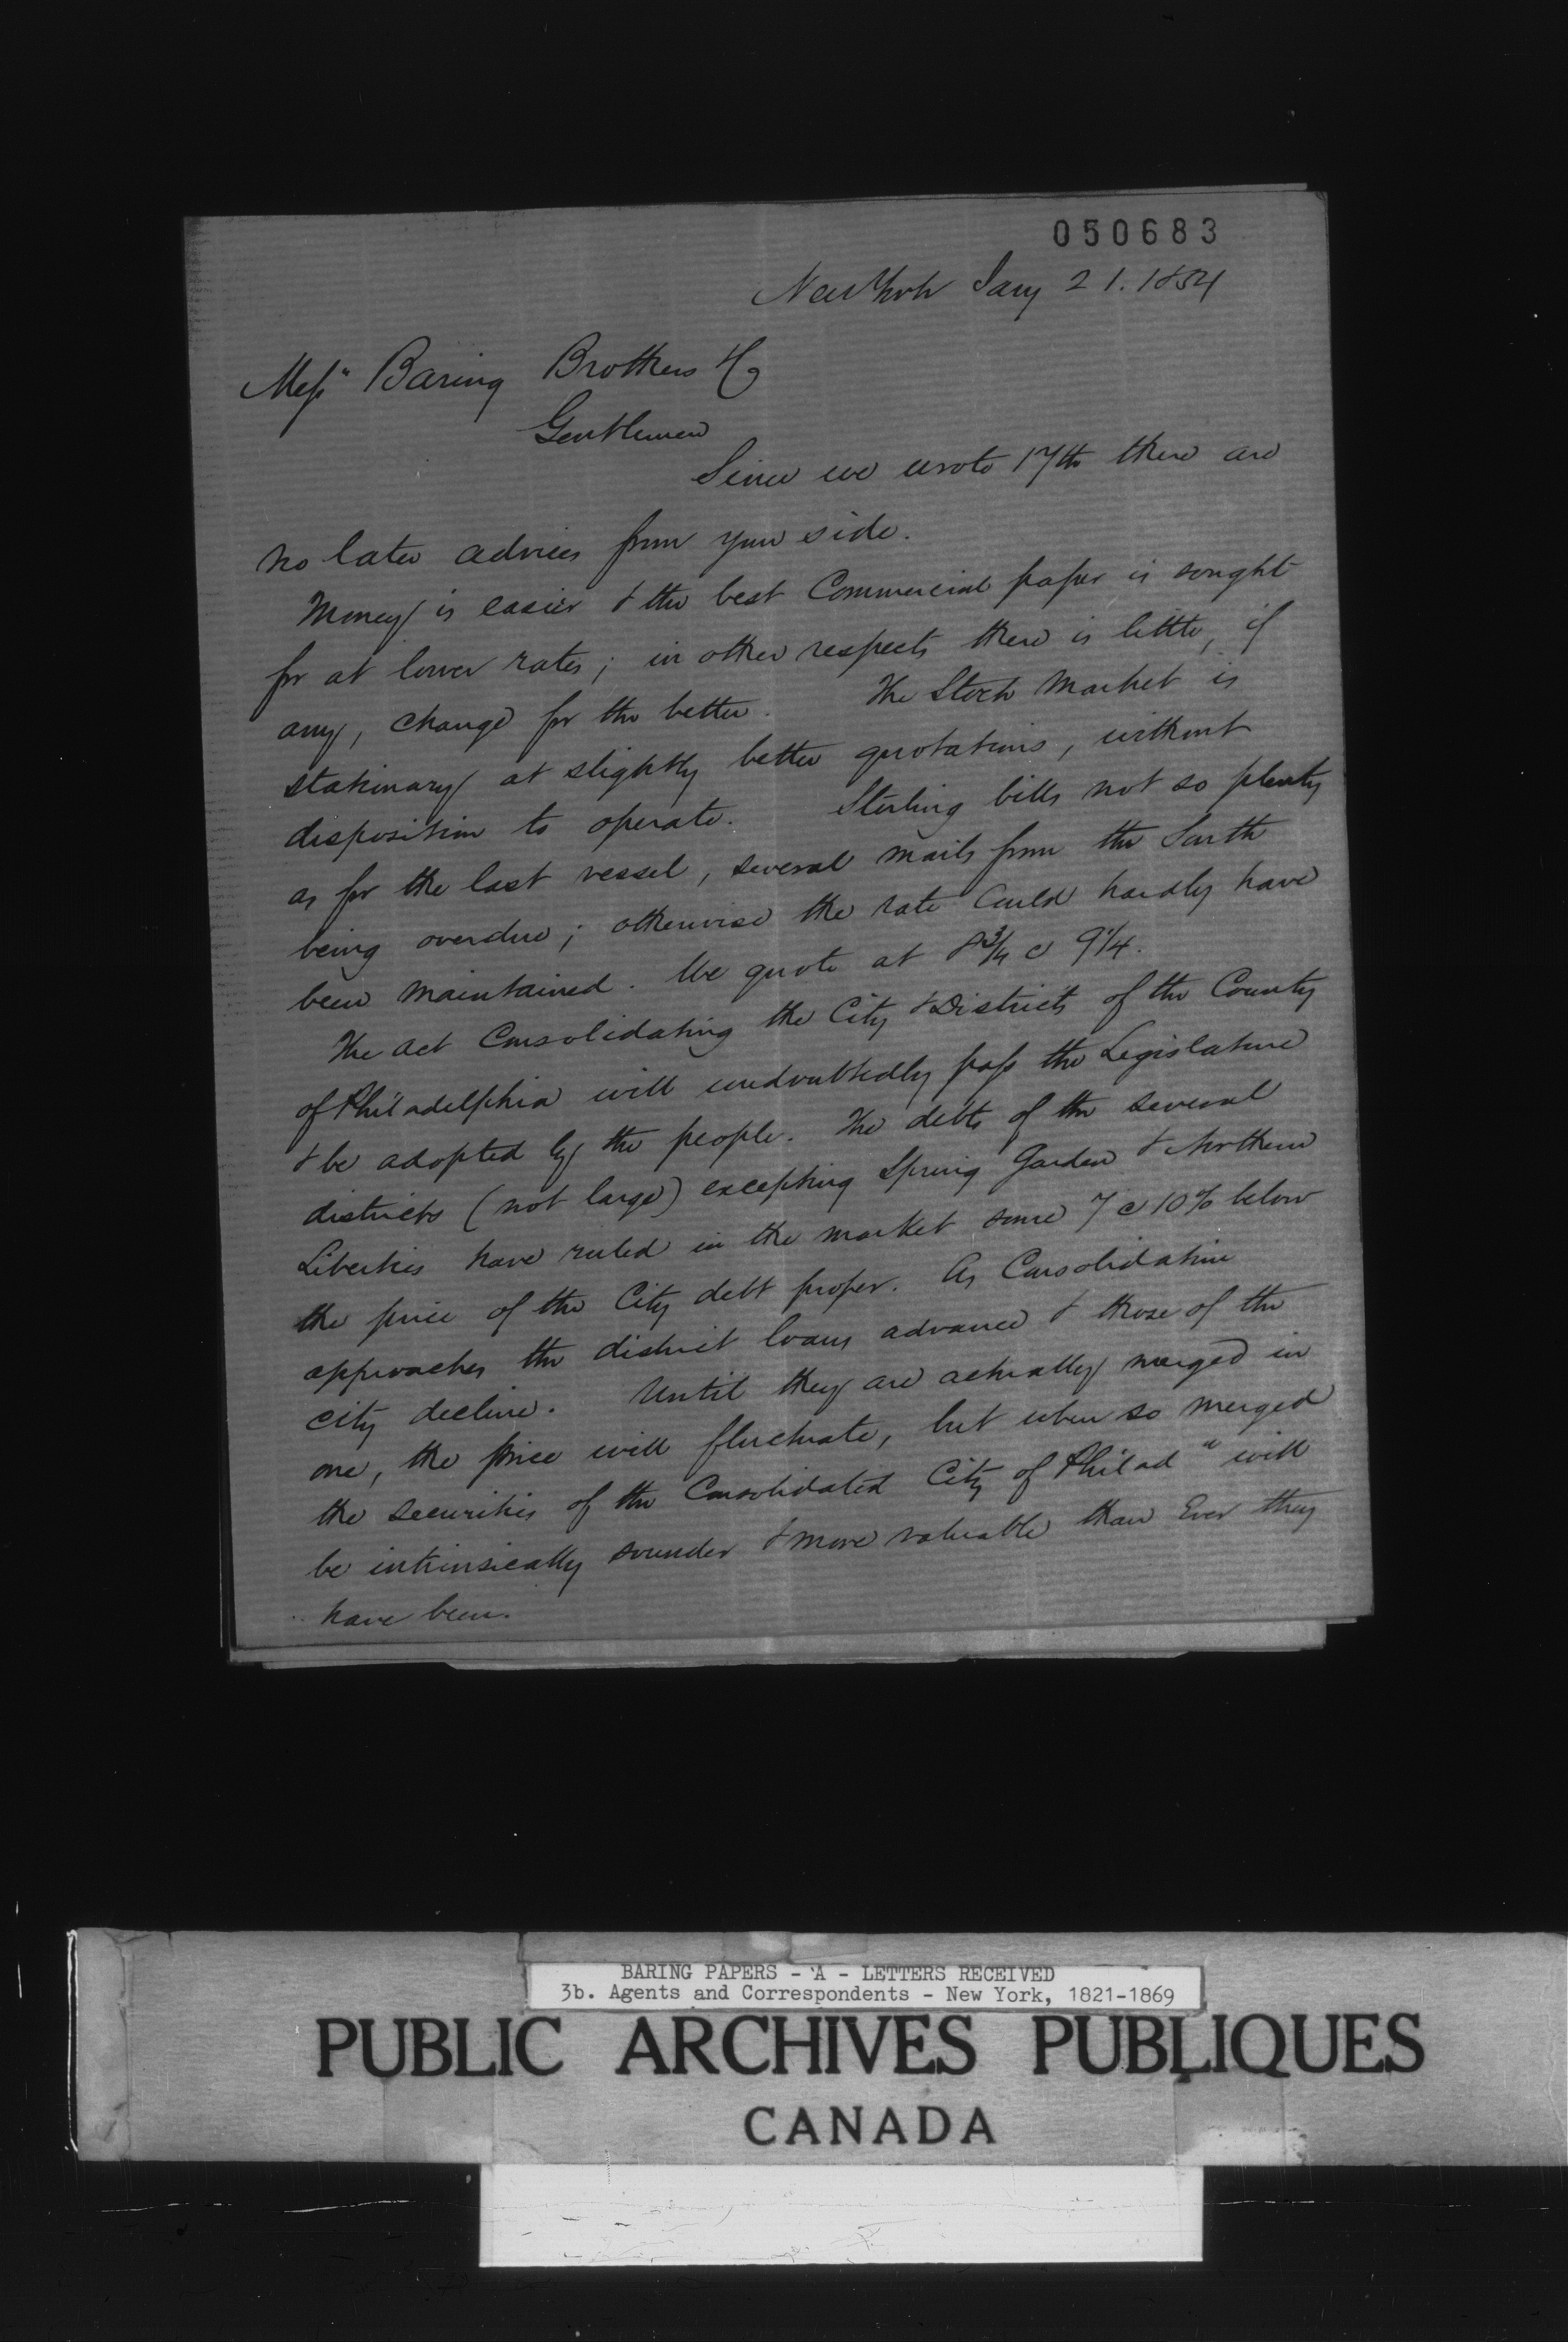 050683
New York Jany 21. 1854
Messrs Baring Brothers & Co
Gentlemen
Since we wrote 17th there are
no later advices from your side.
Money is easier & the best Commercial paper is sought
for at lower rates; in other respects there is little, if
any, change for the better. The Stock Market is
stationary at slightly better quotations, without
disposition to operate. Sterling bills not so plenty
as for the last vessel, several mails from the South
being overdue; otherwise the rate could hardly have
been maintained. We quote at 8 3/4 @ 9 1/4.
The Act Consolidating the City & Districts of the County
of Philadelphia will undoubtedly pass the Legislature
& be adopted by the people. The debts of the several
districts (not large) excepting Spring Garden & Northern
Liberties have ruled in the market some 7 @ 10% below
the price of the City debt proper. As Consolidation
approaches the district loans advance & those of the
city decline. Until they are actually merged in
one, the price will fluctuate, but when so merged
the securities of the Consolidated City of Philada will
be intrinsically sounder & more valuable than Ever they
have been.
BARING PAPERS - A - LETTERS RECEIVED
3b. Agents and Correspondents - New York, 1821-1869
PUBLIC ARCHIVES PUBLIQUES
CANADA